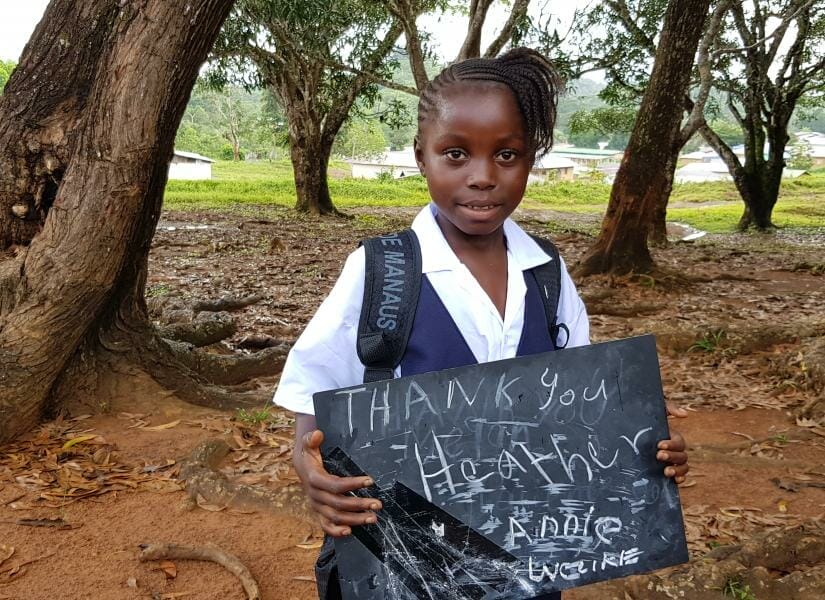 DE MANAUS
THANK You
Heather
Annie